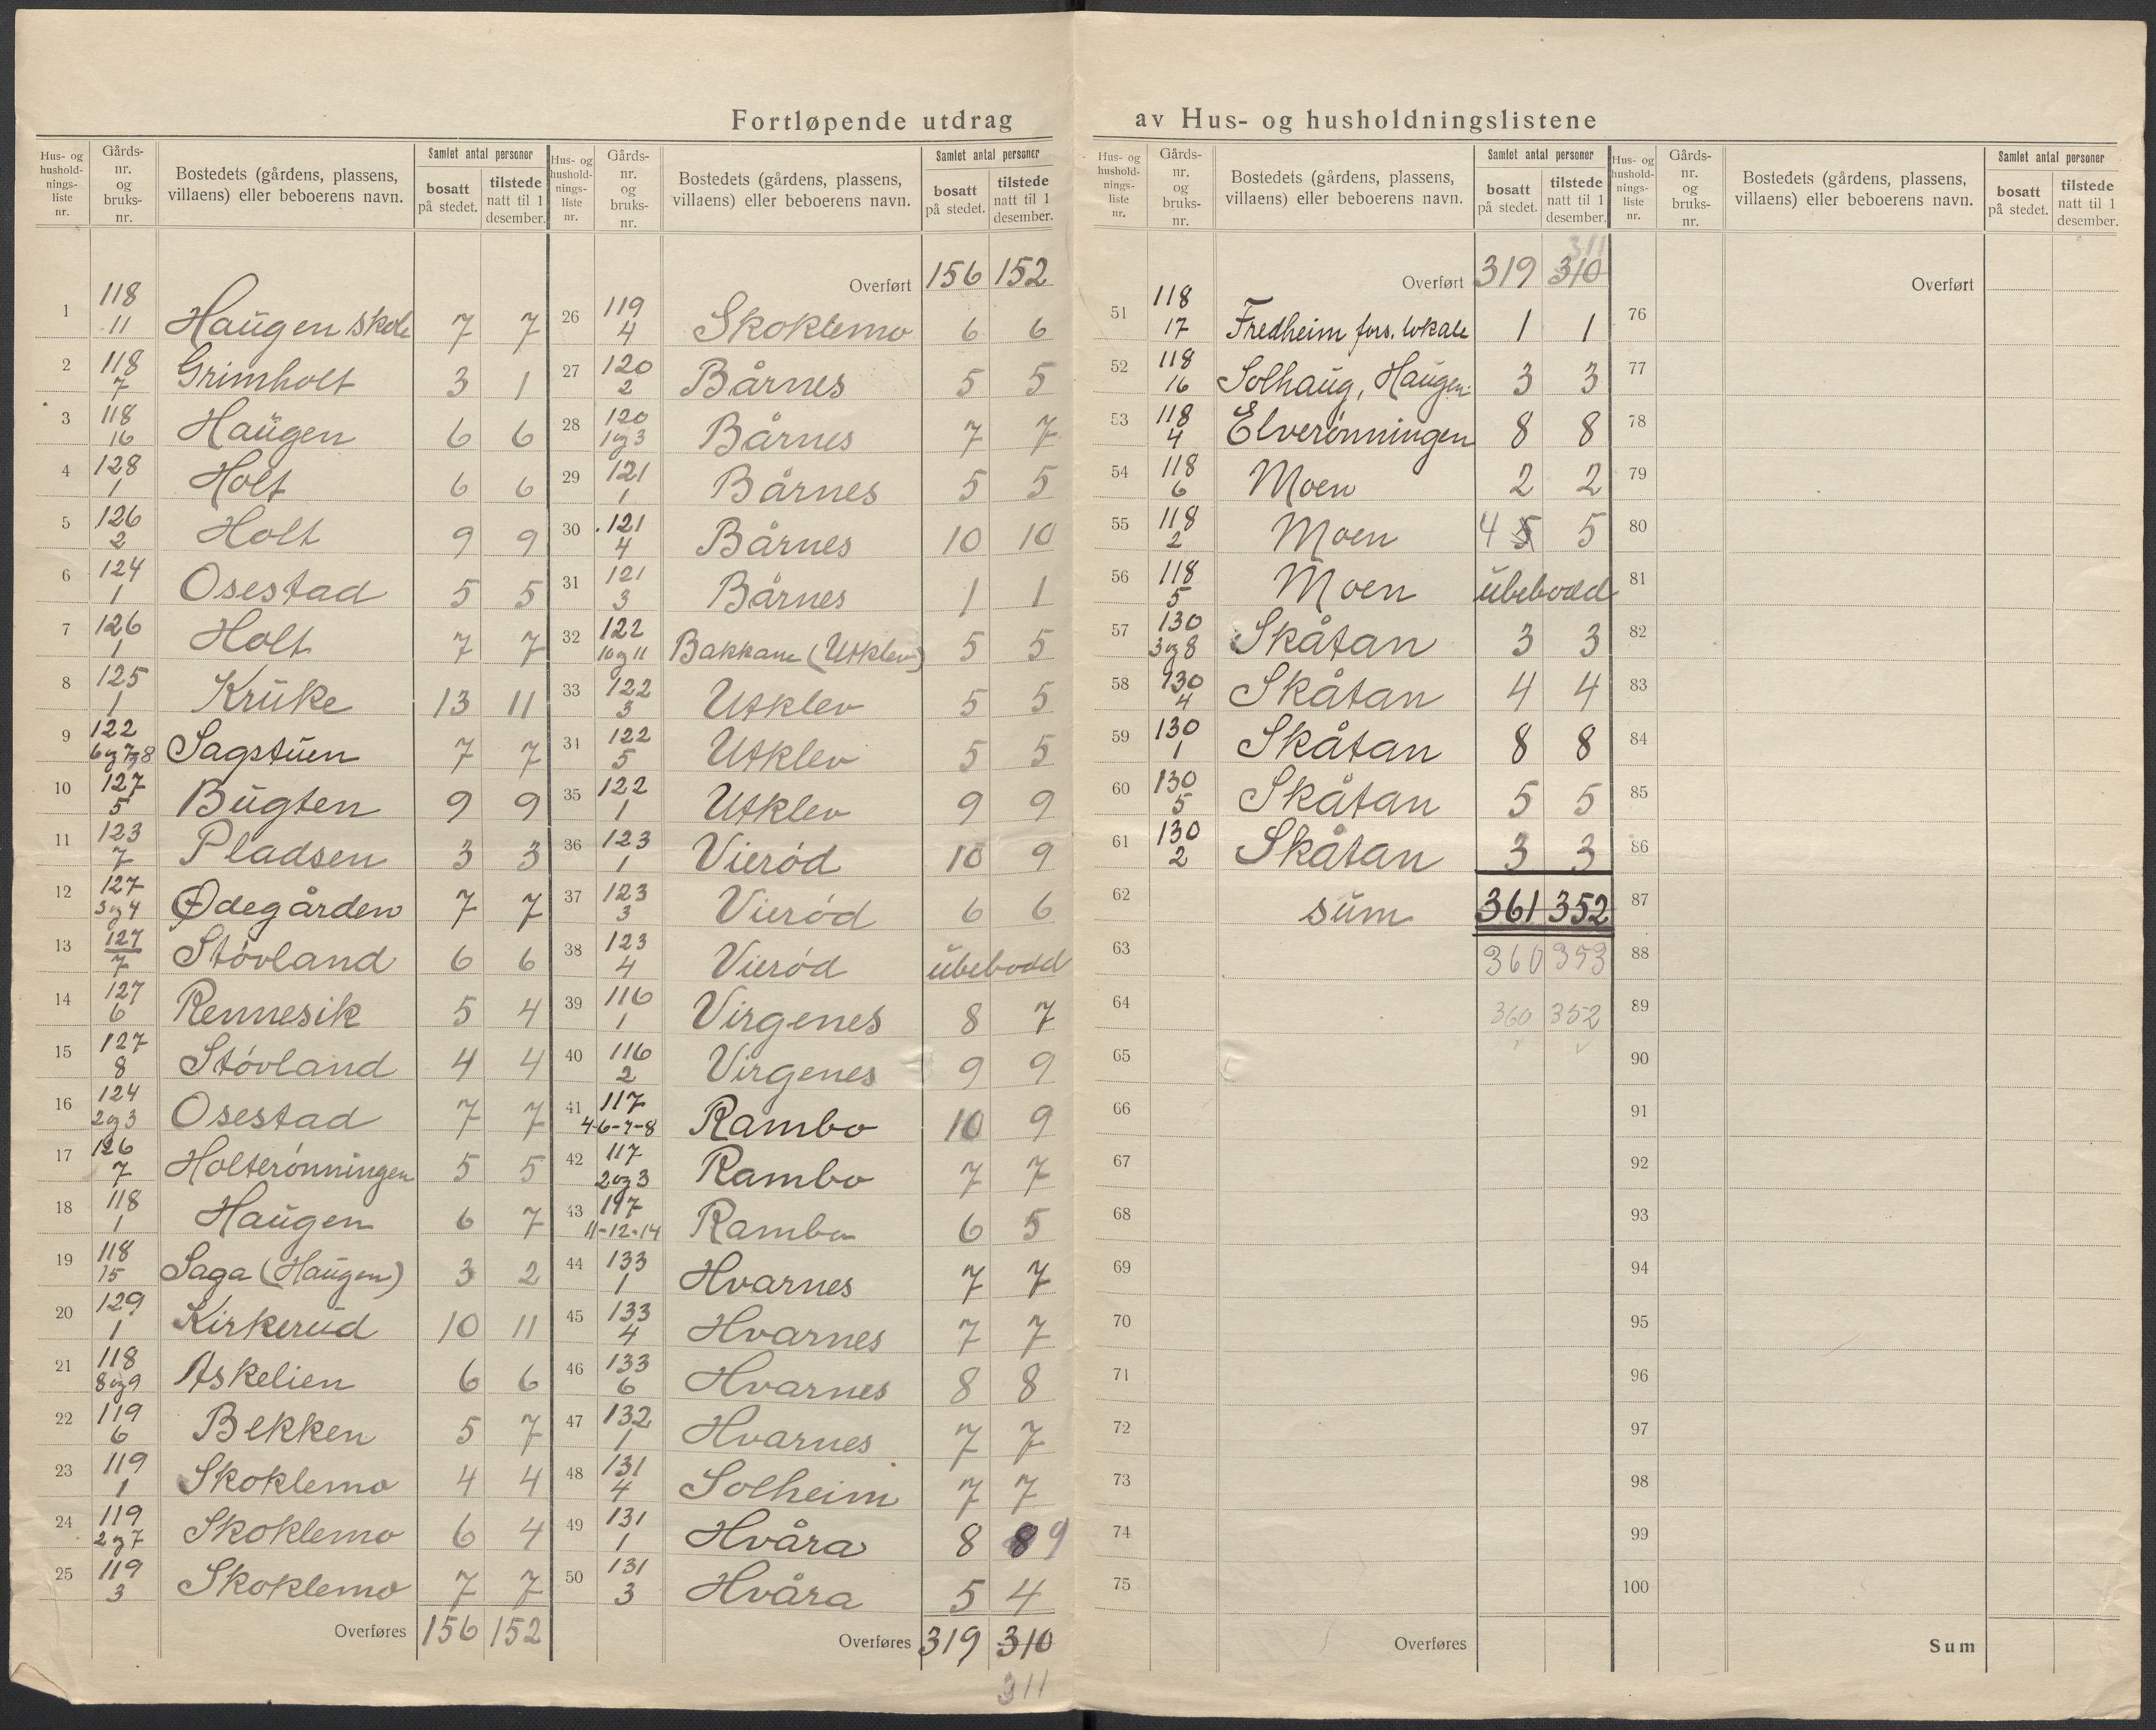 Fortløpende utdrag av Hus- og husholdningslistene
Hus- og husholdnings-liste nr. | Gårds-nr. og bruks-nr. | Bostedets (gårdens, plassens, villaens) eller beboerens navn. | Samlet antal personer | bosatt på stedet. | tilstede natt til 1 desember.
1 118/11 Haugen skole 7 7
2 118/7 Grimholt 3 1
3 118/16 Haugen 6 6
4 128/1 Holt 6 6
5 126/2 Holt 9 9
6 124/1 Osestad 5 5
7 126/1 Holt 7 7
8 125/1 Kruke 13 11
9 122/6og7og8 Sagstuen 7 7
10 127/5 Bugten 9 9
11 123/7 Pladsen 3 3
12 127/3og4 Ødegården 7 7
13 127/7 Støvland 6 6
14 127/6 Rennesik 5 4
15 127/8 Støvland 4 4
16 124/2og3 Osestad 7 7
17 126/7 Holterønningen 5 5
18 118/1 Haugen 6 7
19 118/15 Saga (Haugen) 3 2
20 129/1 Kirkerud 10 11
21 118/8og9 Askelien 6 6
22 119/6 Bekken 5 7
23 119/1 Skoklemo 4 4
24 119/2og7 Skoklemo 6 4
25 119/3 Skoklemo 7 7
Overføres 156 152
Hus- og husholdnings-liste nr. | Gårds-nr. og bruks-nr. | Bostedets (gårdens, plassens, villaens) eller beboerens navn. | Samlet antal personer | bosatt på stedet. | tilstede natt til 1 desember.
Overført 156 152
26 119/4 Skoklemo 6 6
27 120/2 Bårnes 5 5
28 120/1og3 Bårnes 7 7
29 121/1 Bårnes 5 5
30 121/4 Bårnes 10 10
31 121/3 Bårnes 1 1
32 122/10og11 Bakkane (Utklev) 5 5
33 122/3 Utklev 5 5
34 122/5 Utklev 5 5
35 122/1 Utklev 9 9
36 123/1 Vierød 10 9
37 123/3 Vierød 6 6
38 123/4 Vierød ubebodd
39 116/1 Virgenes 8 7
40 116/2 Virgenes 9 9
41 117/4-6-7-8 Rambo 10 9
42 117/2og3 Rambo 7 7
43 117/11-12-14 Rambo 6 5
44 133/1 Hvarnes 7 7
45 133/4 Hvarnes 7 7
46 133/6 Hvarnes 8 8
47 132/1 Hvarnes 7 7
48 131/4 Solheim 7 7
49 131/1 Hvåra 8 8 9
50 131/3 Hvåra 5 4
Overføres 319 310
311
Hus- og husholdnings-liste nr. | Gårds-nr. og bruks-nr. | Bostedets (gårdens, plassens, villaens) eller beboerens navn. | Samlet antal personer | bosatt på stedet. | tilstede natt til 1 desember.
311
Overført 319 310
51 118/17 Fredheim fors. lokale 1 1
52 118/16 Solhaug, Haugen 3 3
53 118/4 Elverønningen 8 8
54 118/6 Moen 2 2
55 118/2 Moen 4 5 5
56 118/5 Moen ubebodd
57 130/3og8 Skåtan 3 3
58 130/4 Skåtan 4 4
59 130/1 Skåtan 8 8
60 130/5 Skåtan 5 5
61 130/2 Skåtan 3 3
62 sum 361 352
63 360 353
64 360 352
65
66
67
68
69
70
71
72
73
74
75
Overføres
Hus- og husholdnings-liste nr. | Gårds-nr. og bruks-nr. | Bostedets (gårdens, plassens, villaens) eller beboerens navn. | Samlet antal personer | bosatt på stedet. | tilstede natt til 1 desember.
Overført
76
77
78
79
80
81
82
83
84
85
86
87
88
89
90
91
92
93
94
95
96
97
98
99
100
Sum